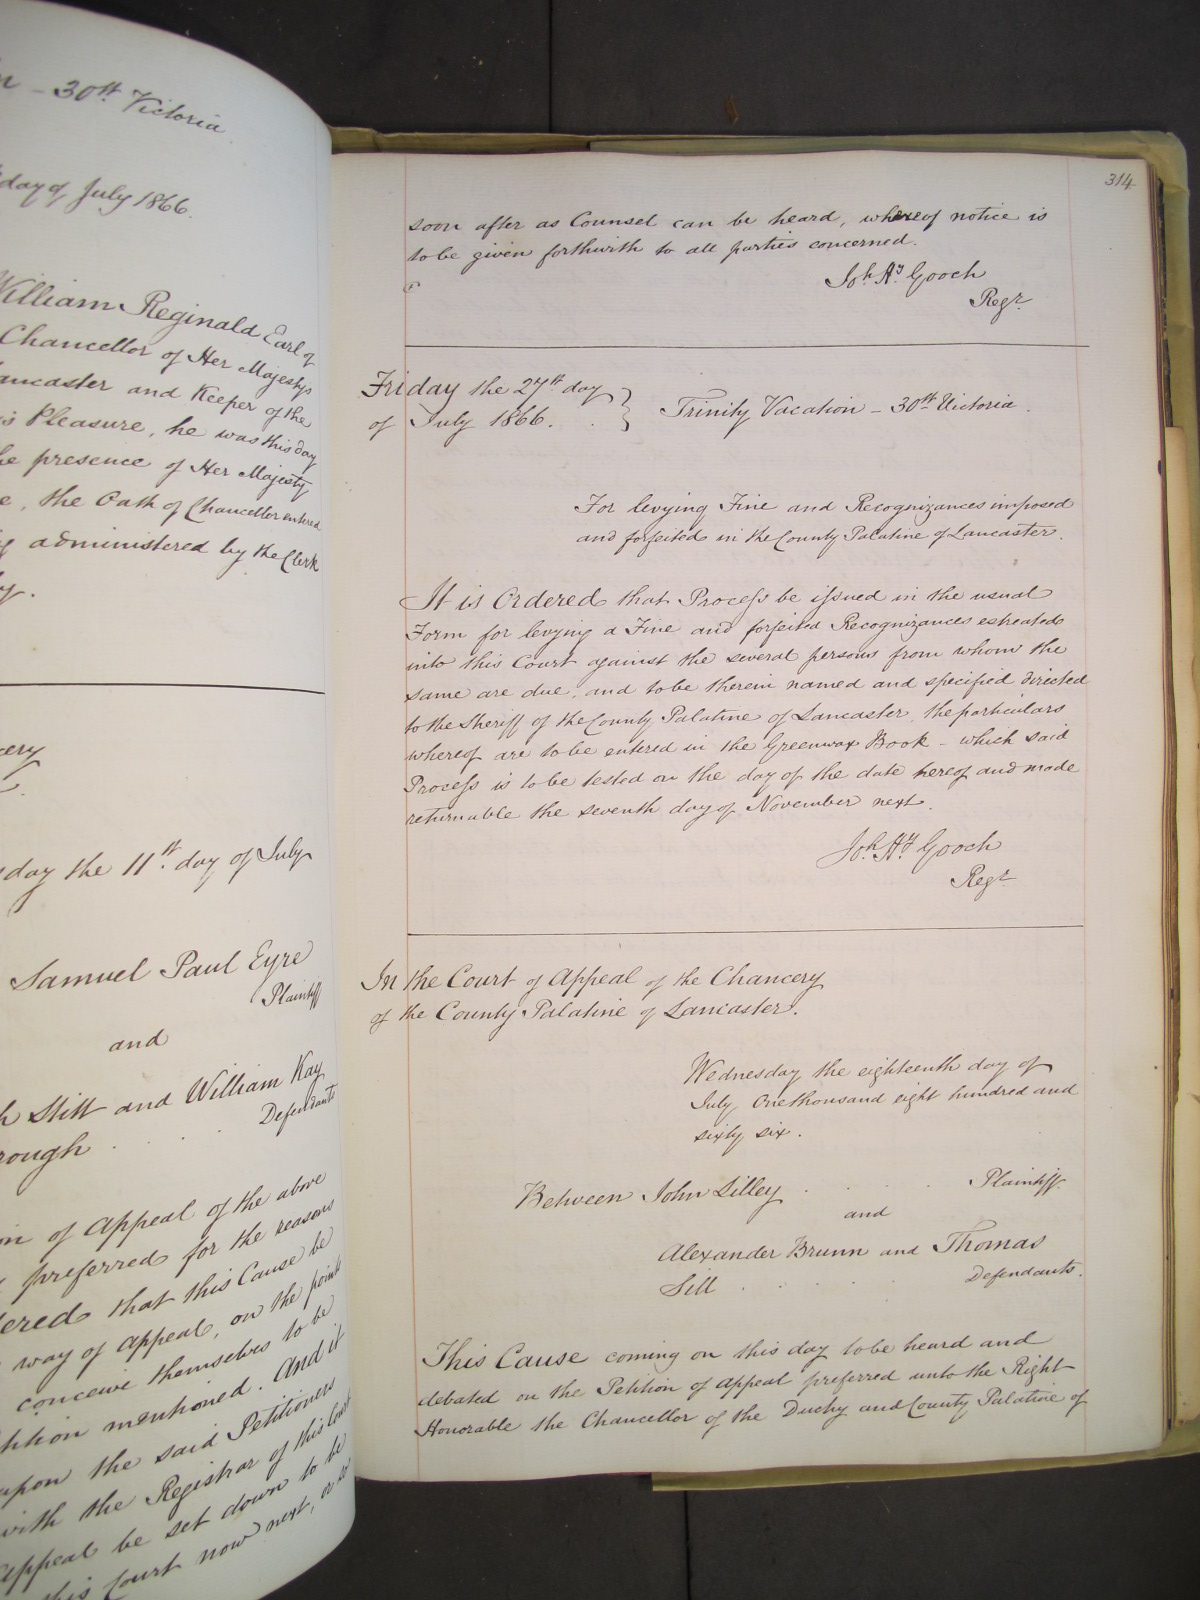 - 30th Victoria
day of July 1866.
William Reginald Earl of
Chancellor of Her Majestys
Lancaster and Keeper of the
Pleasure, he was this day
presence of Her Majesty
the Oath of Chancellor entered
administered by the Clerk
day the 11th day of July
Samuel Paul Eyre
Plaintiff
and
Stitt and William Kay
Defendants
of Appeal of the above
preferred for the reasons
that this Cause be
way of appeal, on the points
conceive themselves to be
mentioned. And it
upon the said Petitioners
with the Registrar of this Court
appeal be set down to be
this Court now next, or so
314
soon after as Counsel can be heard, whereof notice is
to be given forthwith to all parties concerned.
Joh. Hy. Gooch
Regr
Friday the 27th day
of July 1866. } Trinity Vacation - 30th Victoria.
For levying Fine and Recognizances imposed
and forfeited in the County Palatine of Lancaster.
It is Ordered that Process be issued in the usual
Form for levying a Fine and forfeited Recognizances estreated
into this Court against the several persons from whom the
same are due, and to be therein named and specified directed
to the Sheriff of the County Palatine of Lancaster, the particulars
whereof are to be entered in the Greenwax Book - which said
Process is to be tested on the day of the date hereof and made
returnable the seventh day of November next.
Joh. Hy. Gooch
Regr
In the Court of Appeal of the Chancery
of the County Palatine of Lancaster.
Wednesday the eighteenth day of
July One thousand eight hundred and
sixty six.
Between John Lilley . . . . Plaintiff.
and
Alexander Brunn and Thomas
Sill . . . . Defendants.
This Cause coming on this day to be heard and
debated on the Petition of appeal preferred unto the Right
Honorable the Chancellor of the Duchy and County Palatine of